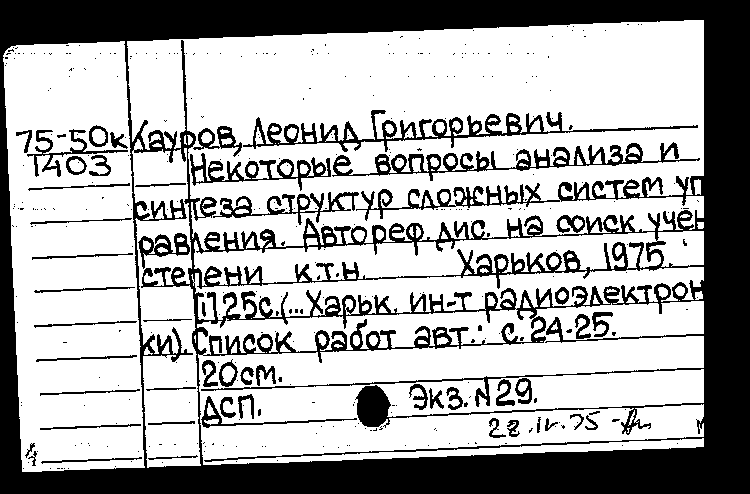 75-50к Кауров, Леонид Григорьевич.
1403 Некоторые вопросы анализа и
синтеза структур сложных систем уп
равления. Автореф. дис. на соиск. учен
степени к.т.н. Харьков, 1975.
[1], 25с. (... Харьк. ин-т радиоэлектрон
ки). Список работ авт.: с. 24-25.
20см.
ДСП. Экз. N29.
28.IV.75
4